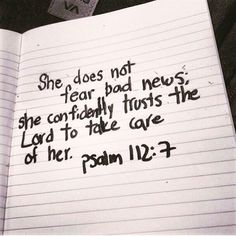 She does not
fear bad news;
she confidently trusts the
Lord to take care
of her. psalm 112:7